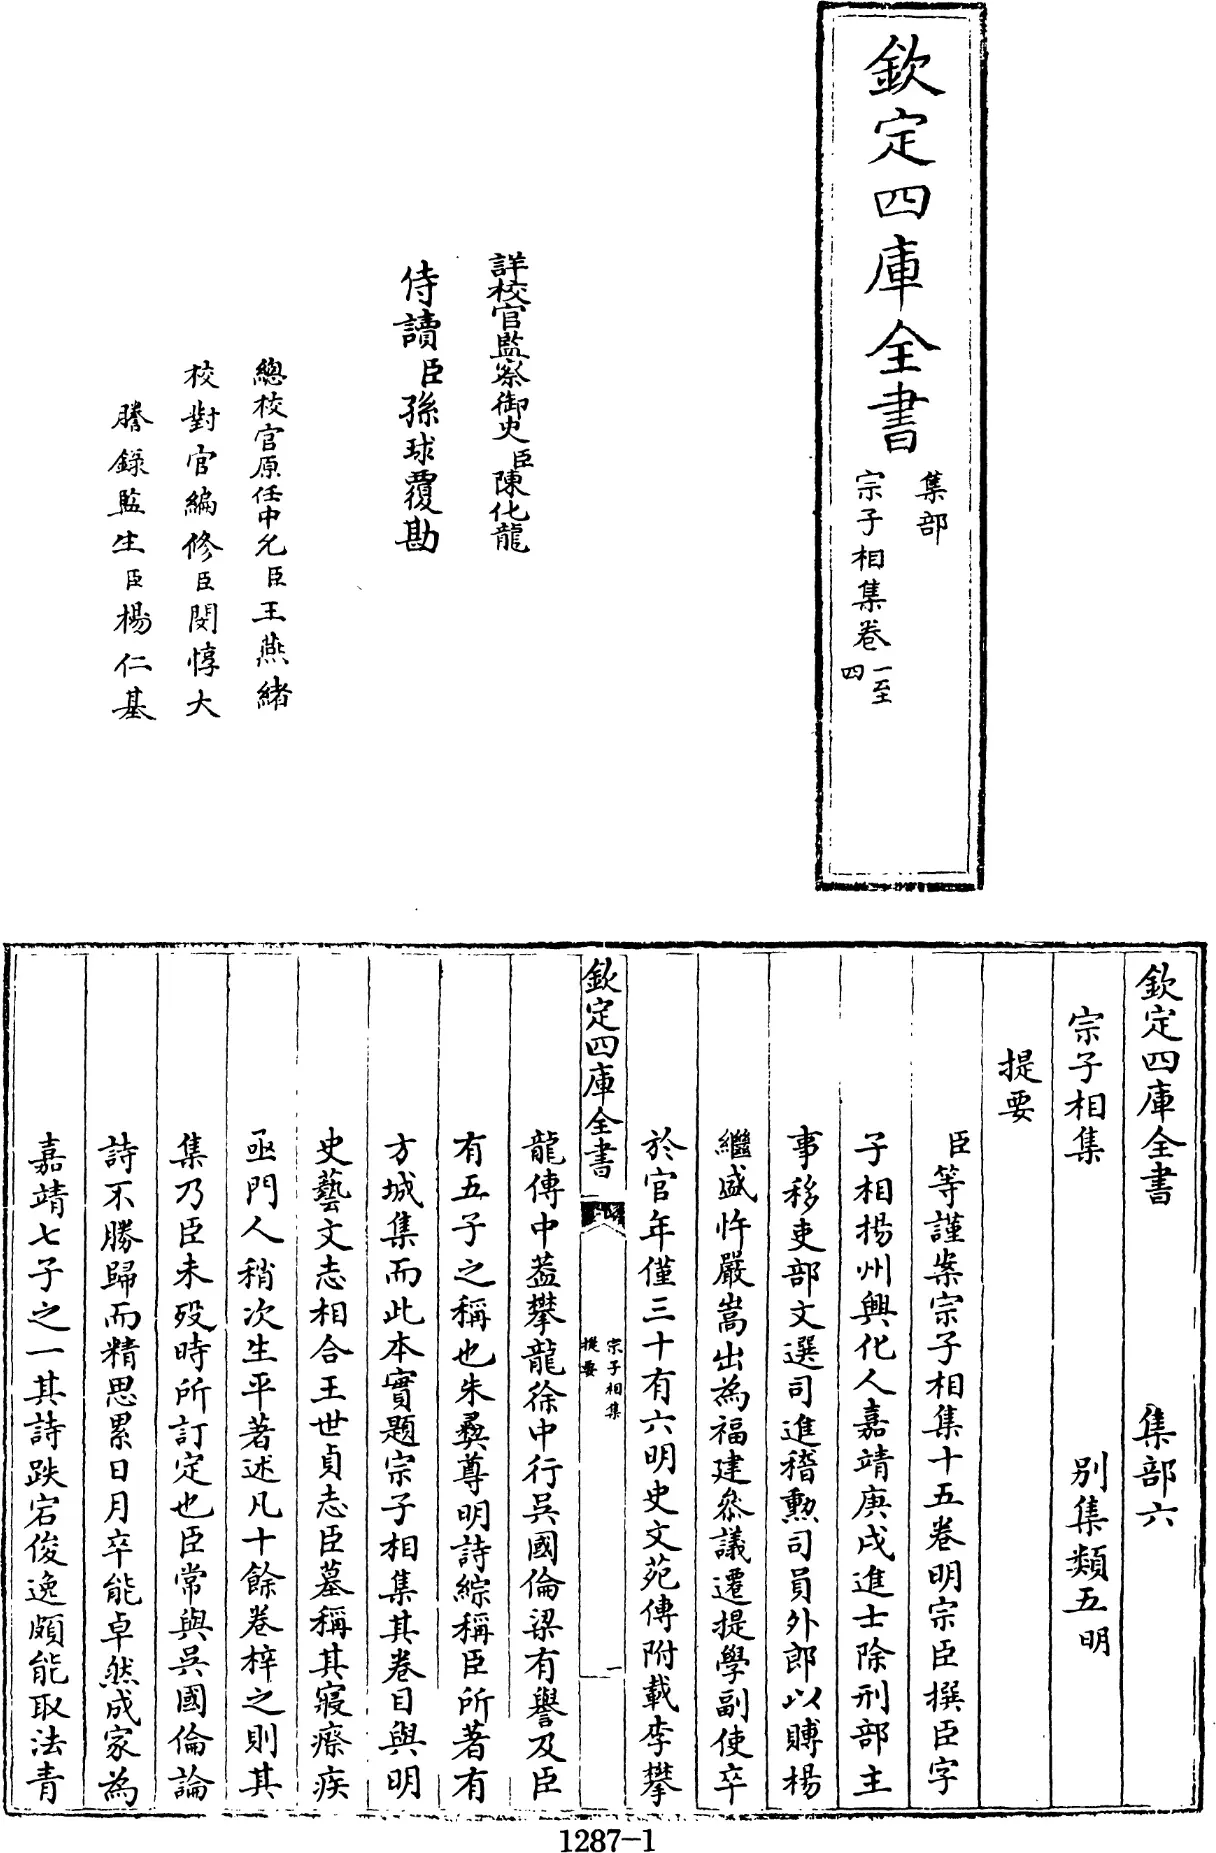 欽定四庫全書
集部
宗子相集卷一至四
詳校官監察御史臣陳化龍
侍讀臣孫球覆勘
總校官原任中允臣王燕緒
校對官編修臣閔惇大
謄錄監生臣楊仁基
欽定四庫全書 集部六
宗子相集 别集類五明
提要
臣等謹案宗子相集十五卷明宗臣撰臣字
子相揚州興化人嘉靖庚戌進士除刑部主
事移吏部文選司進稽勲司員外郎以賻楊
繼盛忤嚴嵩出為福建叅議遷提學副使卒
於官年僅三十有六明史文苑傳附載李攀
欽定四庫全書
宗子相集
提要
一
龍傳中葢攀龍徐中行吳國倫梁有譽及臣
有五子之稱也朱彝尊明詩綜稱臣所著有
方城集而此本實題宗子相集其卷目與明
史藝文志相合王世貞志臣墓稱其寢瘵疾
亟門人稍次生平著述凡十餘卷梓之則其
集乃臣未殁時所訂定也臣常與吳國倫論
詩不勝歸而精思累日月卒能卓然成家為
嘉靖七子之一其詩跌宕俊逸頗能取法青
1287-1